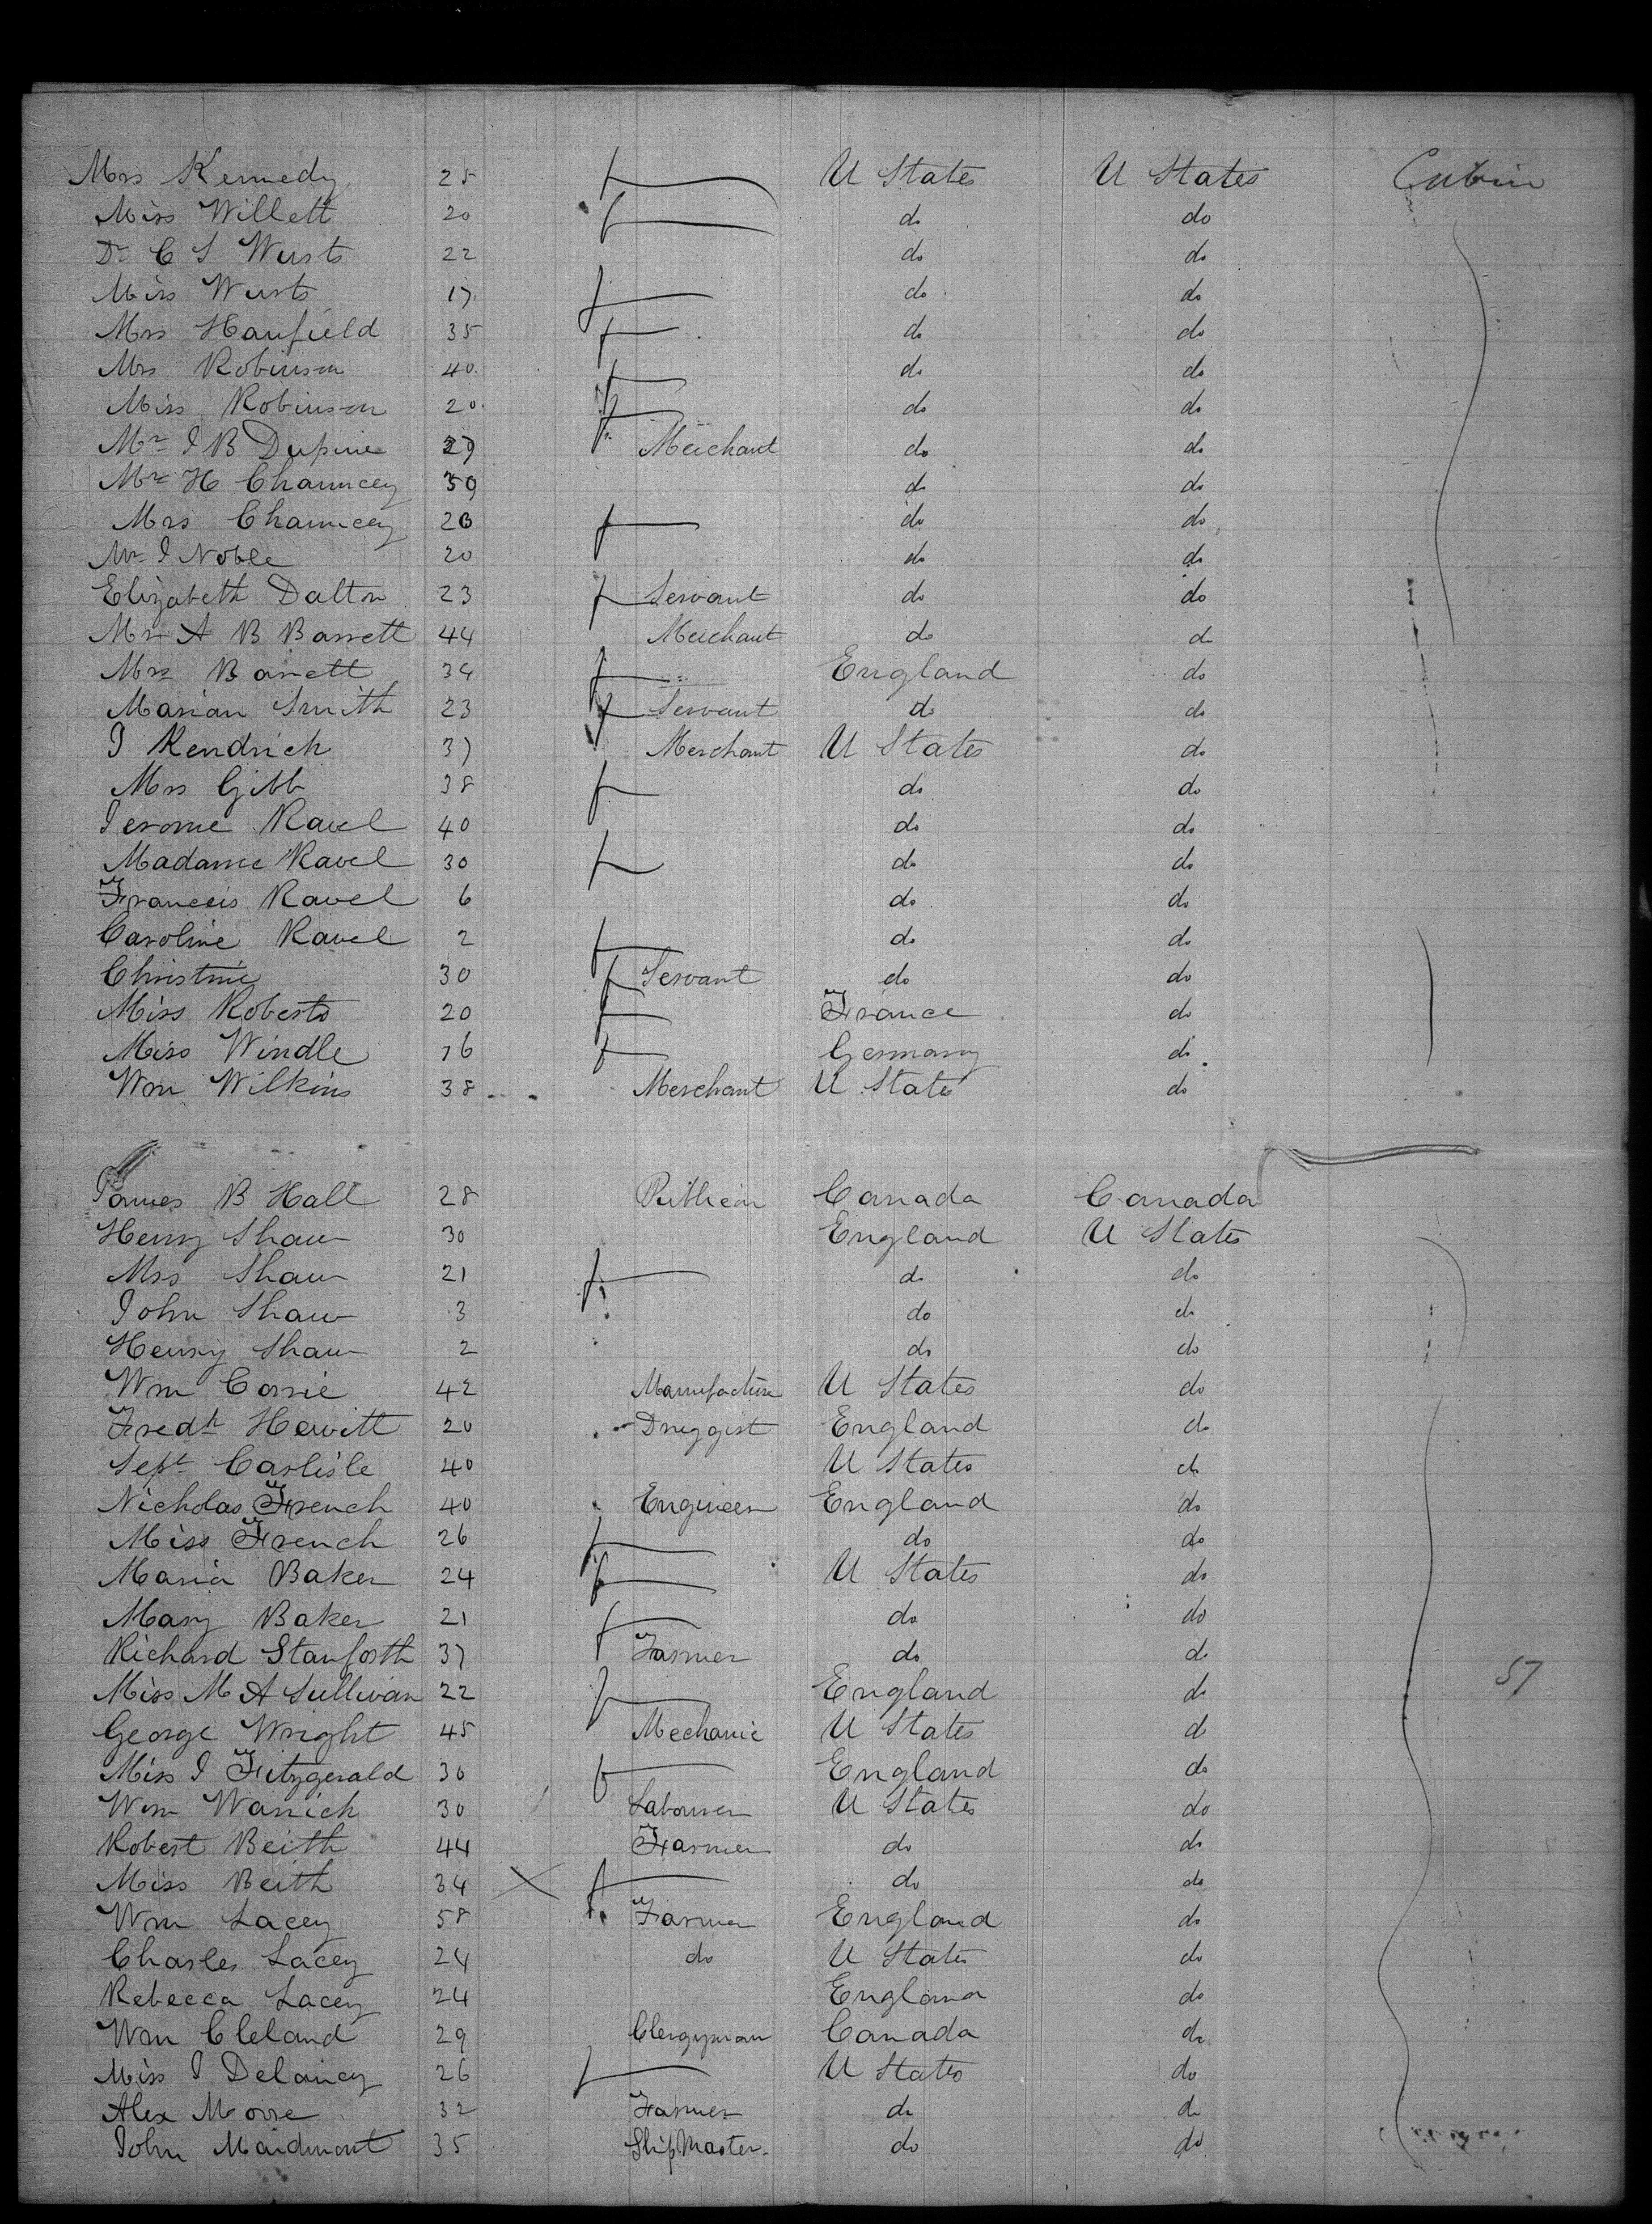 Mrs Kennedy 25 f U States U States Cabin
Miss Willett 20 f do do
Dr C S Wurts 22 do do
Miss Wurts 17 f do do
Mrs Hanfield 35 f do do
Mrs Robinson 40 f do do
Miss Robinson 20 f do do
Mr I B Dupine 29 Merchant do do
Mr H Chauncey 39 do do
Mrs Chauncey 20 f do do
Mr I Noble 20 do do
Elizabeth Dalton 23 f Servant do do
Mr A B Barrett 44 Merchant do do
Mrs Barrett 34 f England do
Marian Smith 23 f Servant do do
I Kendrick 37 Merchant U States do
Mrs Gibb 38 f do do
Jerome Ravel 40 do do
Madame Ravel 30 f do do
Francis Ravel 6 do do
Caroline Ravel 2 f do do
Christine 30 f Servant do do
Miss Roberts 20 f France do
Miss Windle 16 f Germany do
Wm Wilkins 38 Merchant U States do
James B Hall 28 Canada Canada
Henry Shaw 30 England U States
Mrs Shaw 21 f do do
John Shaw 3 do do
Henry Shaw 2 do do
Wm Corrie 42 Manufacture U States do
Fredk Hewitt 20 Druggist England do
Sept Carlisle 40 U States do
Nicholas French 40 Engineer England do
Miss French 26 f do do
Maria Baker 24 f U States do
Mary Baker 21 f do do
Richard Stanforth 37 Farmer do do
Miss M A Sullivan 22 f England do 57
George Wright 45 Mechanic U States do
Miss I Fitzgerald 30 f England do
Wm Warrick 30 Labourer U States do
Robert Beith 44 Farmer do do
Miss Beith 34 X f do do
Wm Lacey 58 Farmer England do
Charles Lacey 24 do U States do
Rebecca Lacey 24 England do
Wm Cleland 29 Clergyman Canada do
Miss I Delaney 26 f U States do
Alex Morre 32 Farmer do do
John Maidmont 35 Ship Master do do